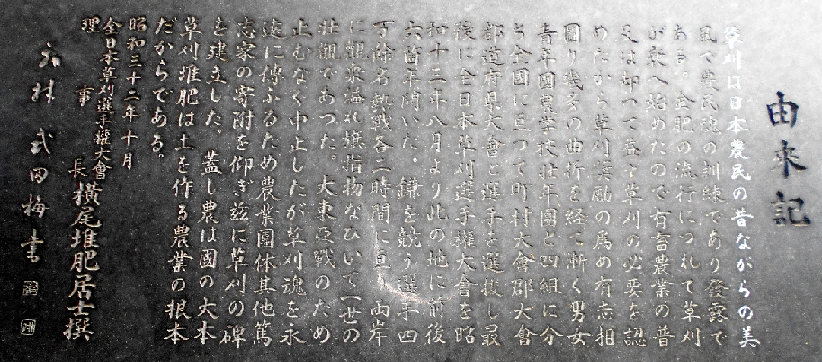 由來記
草刈は日本農民の昔ながらの美
風で農民魂の訓練であり發露で
ある。金肥の流行につれて草刈
が衰へ始めたので有畜農業の普
及は却つて益々草刈の必要を認
めたから草刈奨励の為め有志相
圖り幾多の曲折を経て漸く男女
青年團農学校壮年團と四組に分
ち全國に亘つて町村大會郡大會
都道府県大會と選手を選抜し最
後に全日本草刈選手權大會を昭
和十三年八月より此の地に前後
六箇年開いた。鎌を競う選手四
百余名熱戦各二時間に亘り両岸
に観衆溢れ旗指物なびいて一世の
壮観であつた。大東亞戦のため
止むなく中止したが草刈魂を永
遠に傳ふるため農業團体其他篤
志家の寄附を仰ぎ茲に草刈の碑
を建立した。蓋し農は國の大本
草刈堆肥は土を作る農業の根本
だからである。
昭和三十二年十月
全日本草刈選手權大會
理事長 横尾堆肥居士撰
武田梅書